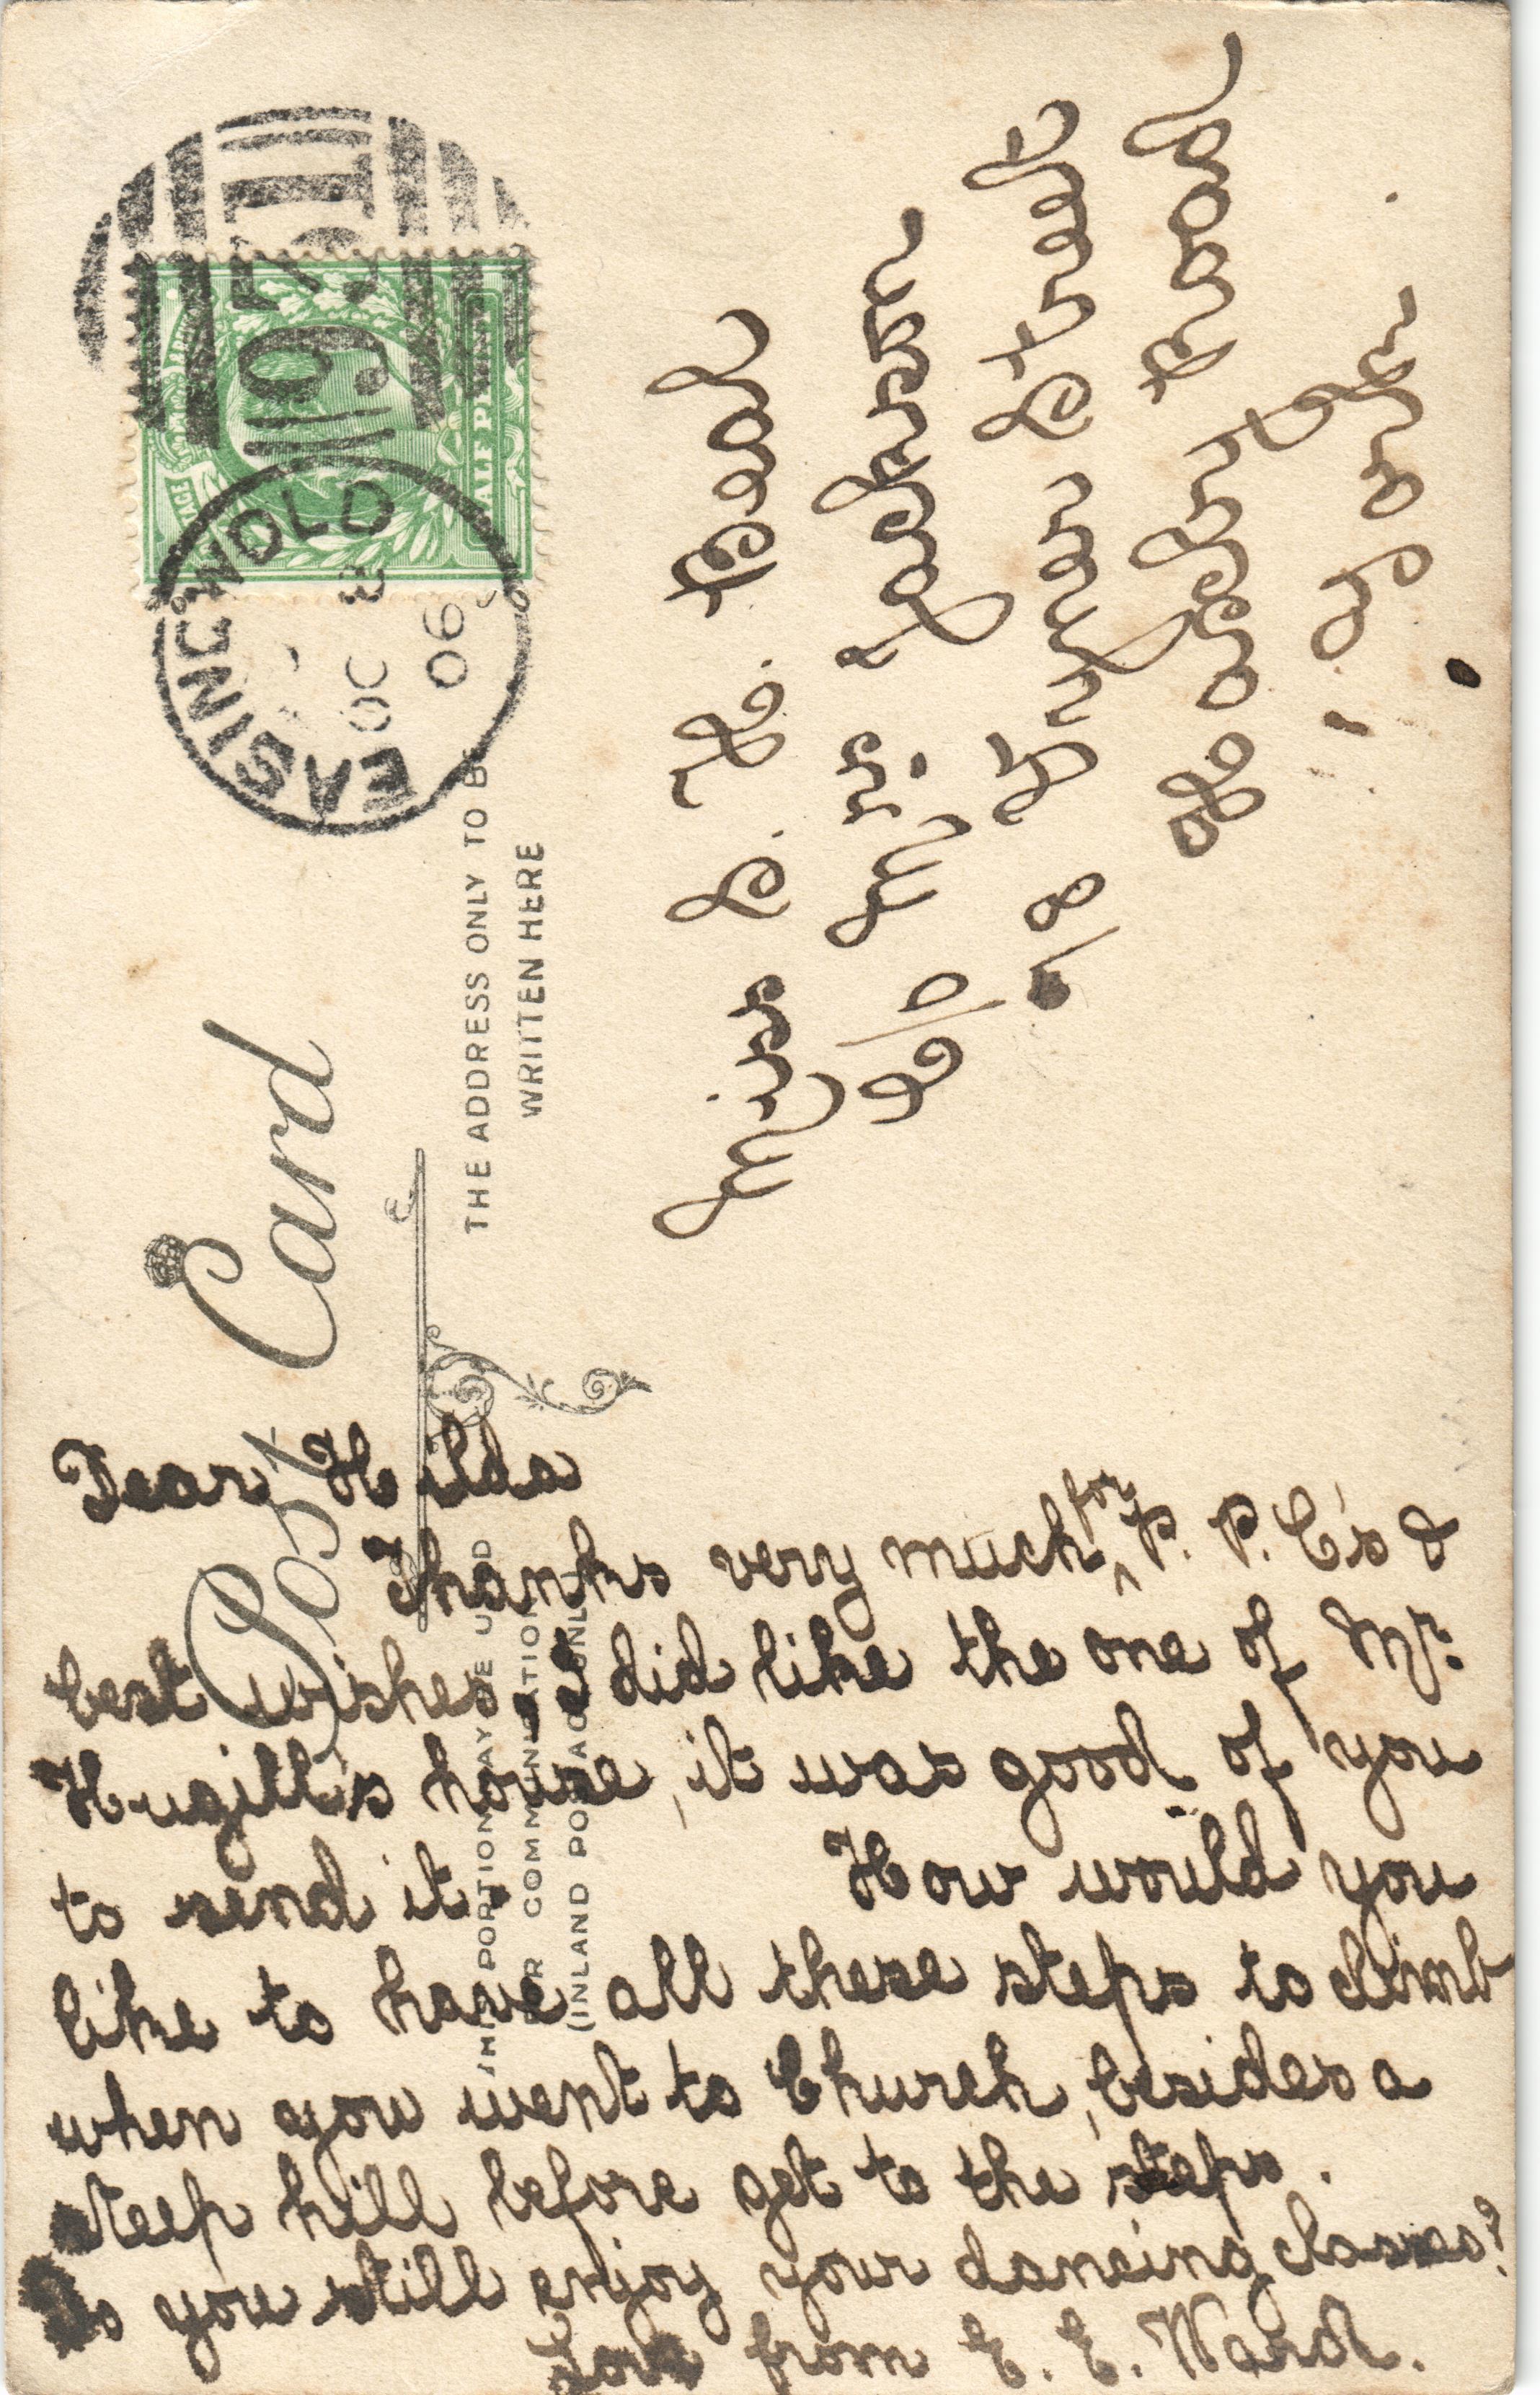 Post Card
THE ADDRESS ONLY TO BE
WRITTEN HERE
THIS PORTION MAY BE USED
FOR COMMUNICATION
(INLAND POSTAGE ONLY)
HALF PENNY
EASINGWOLD
OC 8
06
Miss E. H.
c/o Mrs. Jackson
8 Street
Road
York.
Dear Hilda
Thanks very much for P. P. C's &
best wishes, I did like the one of Mr.
Hugill's house, it was good of you
to send it. How would you
like to have all these steps to climb
when you went to Church, besides a
steep hill before get to the steps.
Do you still enjoy your dancing classes?
Love from E. E. Ward.